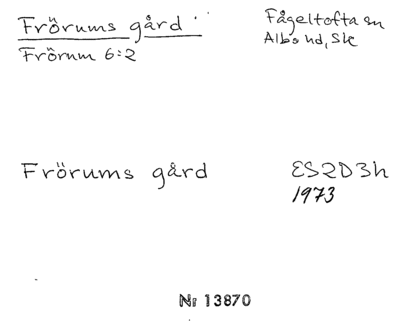 Frörums gård
Frörum 6:2
Fågeltofta sn
Albo hd, Sk
Frörums gård
ES2D3h
1973
Nr 13870